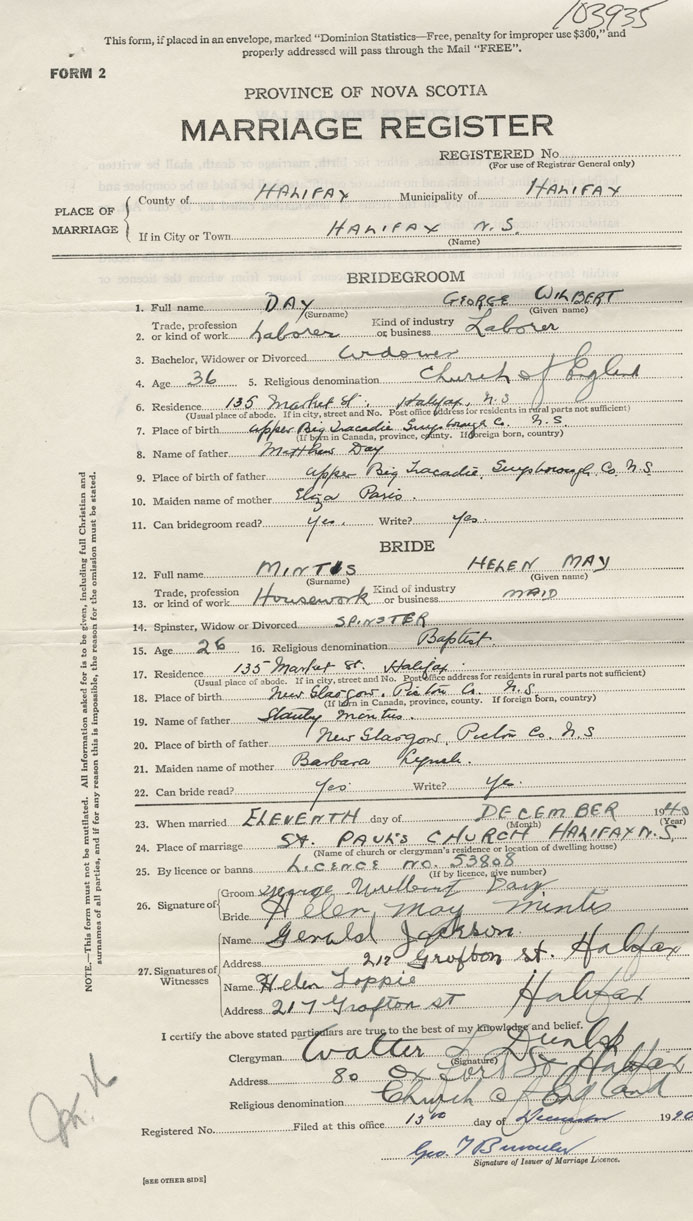 103935
This form, if placed in an envelope, marked “Dominion Statistics—Free, penalty for improper use $300,” and
properly addressed will pass through the Mail “FREE”.
FORM 2
PROVINCE OF NOVA SCOTIA
MARRIAGE REGISTER
REGISTERED No.
(For use of Registrar General only)
PLACE OF MARRIAGE
County of HALIFAX Municipality of HALIFAX
If in City or Town HALIFAX N.S.
(Name)
BRIDEGROOM
1. Full name DAY GEORGE WILBERT
(Surname) (Given name)
2. Trade, profession or kind of work Laborer Kind of industry or business Laborer
3. Bachelor, Widower or Divorced Widower
4. Age 36 5. Religious denomination Church of England
6. Residence 135 Market St. Halifax, N.S
(Usual place of abode. If in city, street and No. Post office address for residents in rural parts not sufficient)
7. Place of birth Upper Big Tracadie Guysborough Co. N.S.
(If born in Canada, province, county. If foreign born, country)
8. Name of father Matthew Day
9. Place of birth of father Upper Big Tracadie, Guysborough Co. N.S.
10. Maiden name of mother Eliza Paris.
11. Can bridegroom read? yes. Write? yes.
BRIDE
12. Full name MINTIS HELEN MAY
(Surname) (Given name)
13. Trade, profession or kind of work Housework Kind of industry or business MAID
14. Spinster, Widow or Divorced SPINSTER
15. Age 26 16. Religious denomination Baptist.
17. Residence 135 Market St. Halifax.
(Usual place of abode. If in city, street and No. Post office address for residents in rural parts not sufficient)
18. Place of birth New Glasgow, Pictou Co. N.S.
(If born in Canada, province, county. If foreign born, country)
19. Name of father Stanly Mintis.
20. Place of birth of father New Glasgow, Pictou Co. N.S
21. Maiden name of mother Barbara Lynch.
22. Can bride read? Yes. Write? Yes.
23. When married ELEVENTH day of DECEMBER 1940
(Month) (Year)
24. Place of marriage ST. PAUL'S CHURCH HALIFAX N.S.
(Name of church or clergyman's residence or location of dwelling house)
25. By licence or banns LICENCE NO. 53808
(If by licence, give number)
26. Signature of
Groom George Wilbert Day
Bride Helen May Mintis
27. Signatures of Witnesses
Name Gerald Jackson.
Address 217 Grafton St. Halifax
Name Helen Toppie
Address 217 Grafton St Halifax
I certify the above stated particulars are true to the best of my knowledge and belief.
Clergyman Walter L Dunlop
(Signature)
Address 80 Oxford St Halifax
Religious denomination Church of England
Registered No. Filed at this office 13th day of December 1940
Geo. T
Signature of Issuer of Marriage Licence.
[SEE OTHER SIDE]
NOTE.—This form must not be mutilated. All information asked for is to be given, including full Christian and
surnames of all parties, and if for any reason this is impossible, the reason for the omission must be stated.